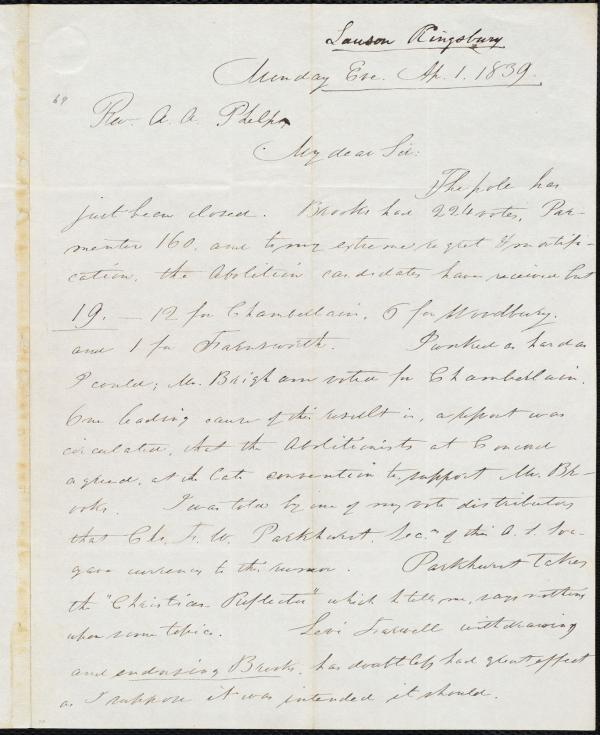 Lauson Kingsbury
Monday Eve. Ap. 1. 1839.
69
Rev. A. A. Phelps
My dear Sir:
The pole has
just been closed. Brooks had 224 votes, Par-
menter 160, and to my extreme regret & mortifi-
cation, the Abolition candidates have received but
19. — 12 for Chamberlain, 6 for Woodbury,
and 1 for Farnsworth. I worked as hard as
I could; Mr. Brigham voted for Chamberlain.
One leading cause of this result is, a report was
circulated, that the Abolitionists at Concord
agreed, at the late convention to support Mr. Bro-
oks. I was told by one of my vote distributors
that Chs. F. W. Parkhurst, Sec.y of this A. S. Soc.
gave currency to the rumor. Parkhurst takes
the "Christian Reflector" which he tells me, says nothing
upon some topics. Levi Farwell withdrawing
and endorsing Brooks, has doubtless had great effect
as I suppose it was intended it should.